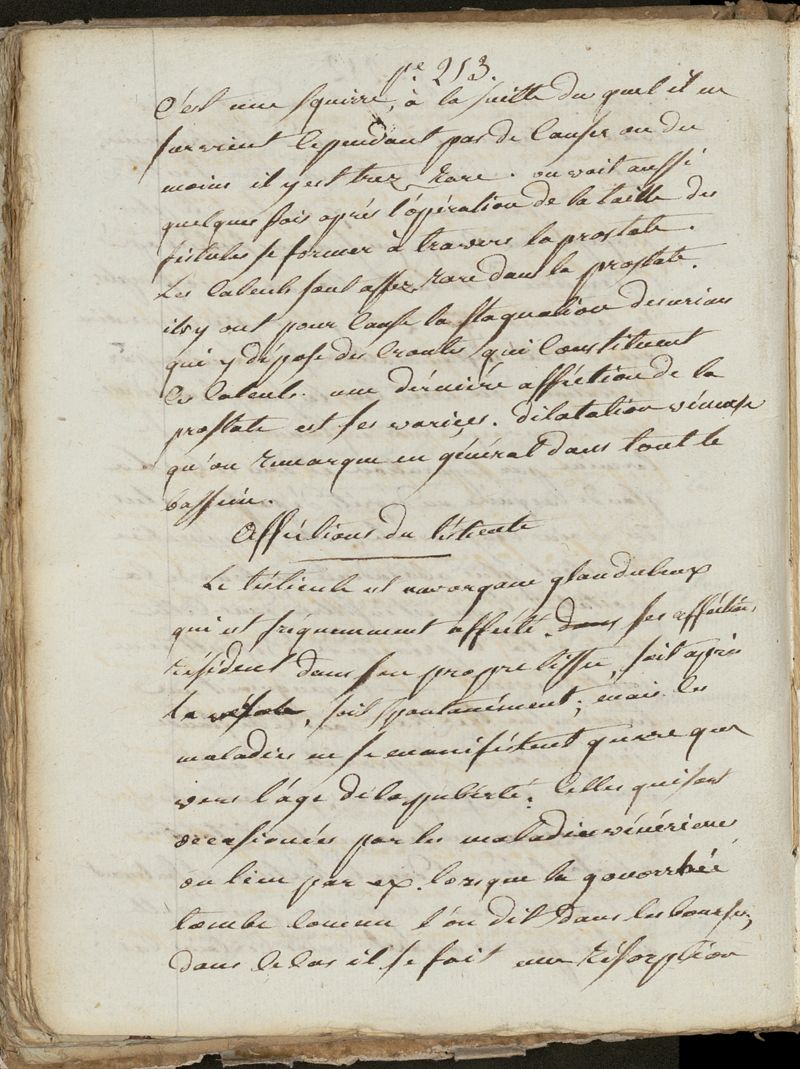 pe 213.
C'est une squirre, à la suitte du quel il ne
survient cependant pas de Canser ou du
moins il y est trez Rare. on voit aussi
quelques fois aprés l'opération de la taille des
fistules se former à travers la prostate.
Les Calculs sont assez Rare dans la prostate.
ils y ont pour Cause la Stagnation des urines
qui y dépose des Croutes qui Constituent
Ces Calculs. une dérniére afféction de la
prostate est ses varices. dilatation véneuse
qu'on Remarque en général dans tout le
bassin.
Afféctions du Tésticule
Le tésticule est un organe glanduleux
qui est fréquemment affécté. ses afféctions
résident dans son propre tissu, soit aprés
la , soit spontanément; mais les
maladies ne se manifestent guere que
vers l'âge de la puberté. Celles qui sont
occasionées par les maladies vénériénes
ont lieu par ex. lorsque la gonorrhée
tombe comme l'on dit dans les bourses,
dans ce Cas il se fait une Résorption